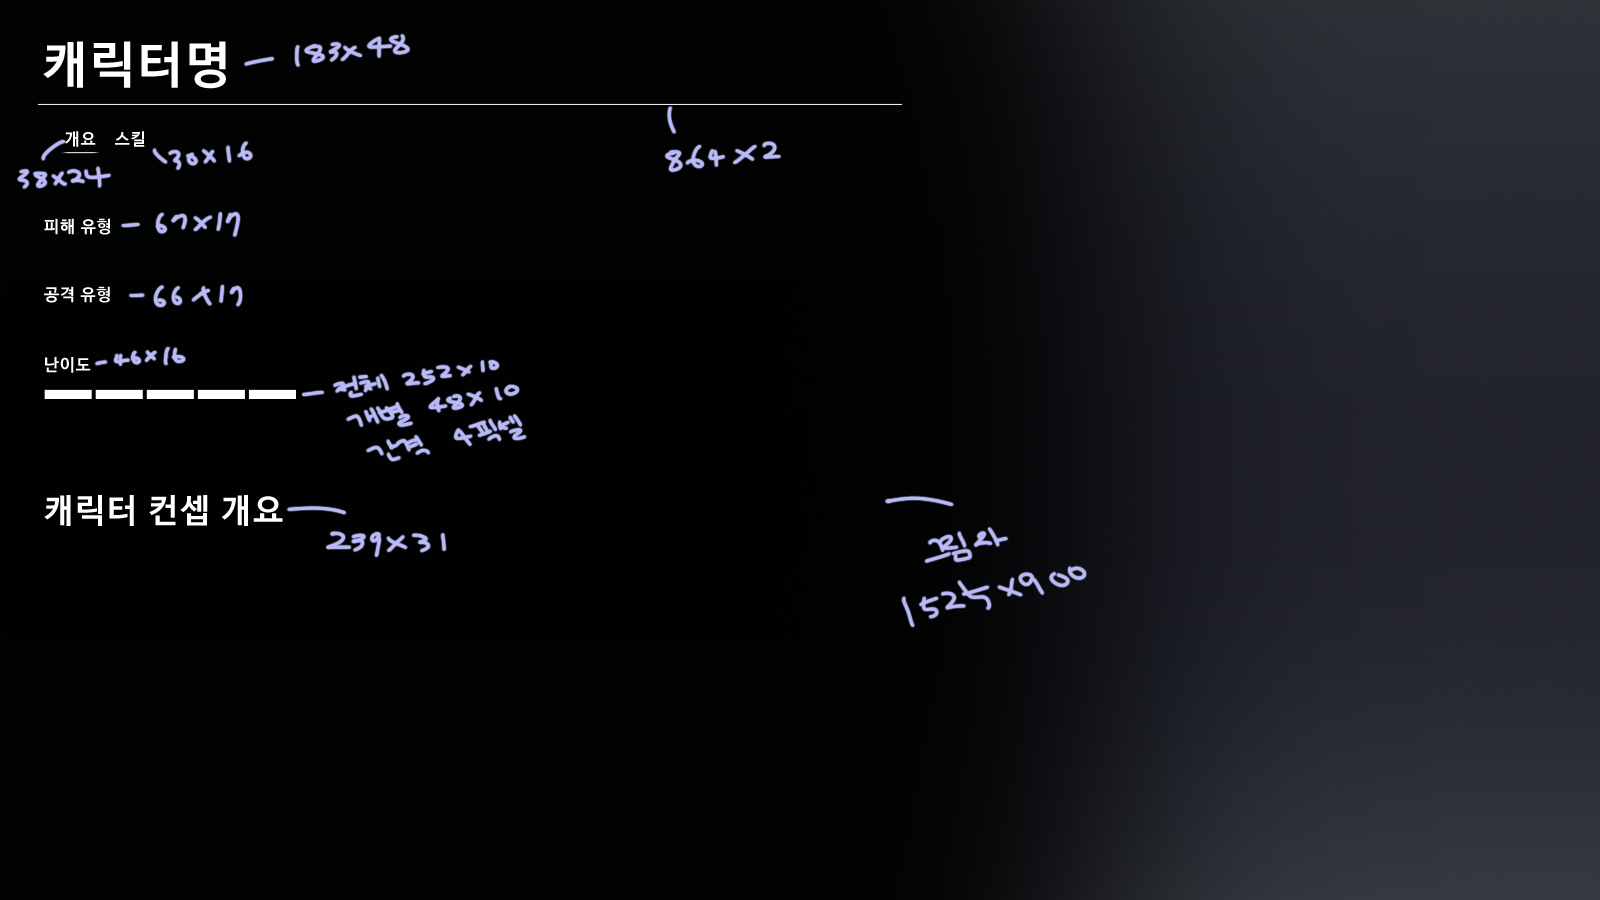 캐릭터명 - 183x48
개요 스킬
30x16
38x24
864x2
피해 유형 - 67x17
공격 유형 - 66x17
난이도 - 46x16
- 전체 252x10
개별 48x10
간격 4픽셀
캐릭터 컨셉 개요
239x31
그림자
1525x900